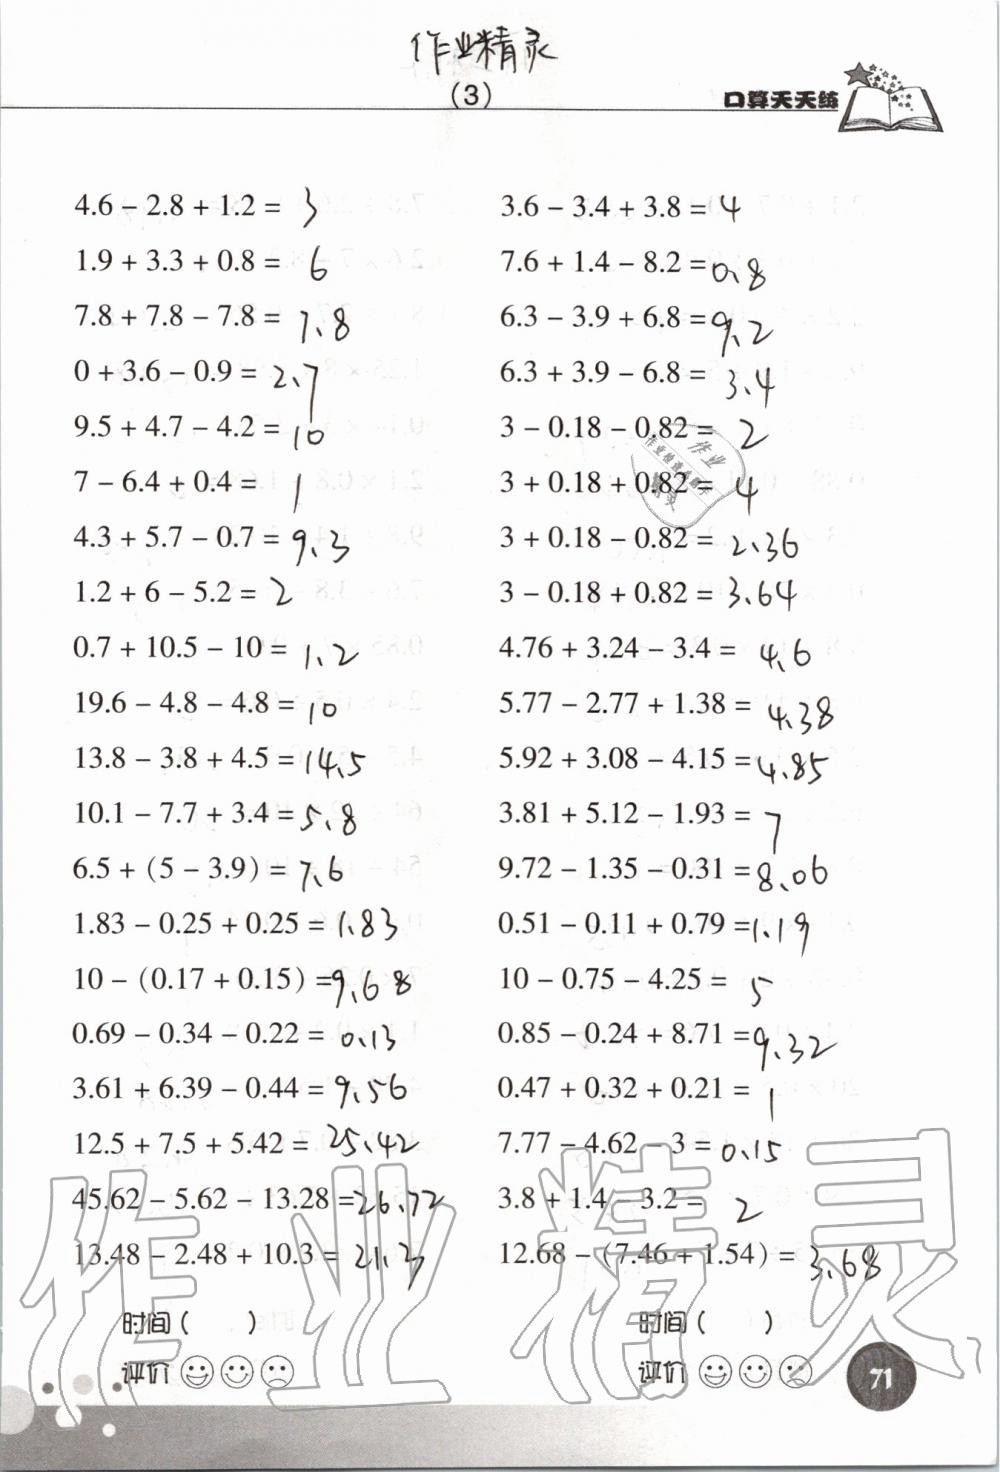 作业精灵
(3)
口算天天练
4.6 − 2.8 + 1.2 = 3
1.9 + 3.3 + 0.8 = 6
7.8 + 7.8 − 7.8 = 7.8
0 + 3.6 − 0.9 = 2.7
9.5 + 4.7 − 4.2 = 10
7 − 6.4 + 0.4 = 1
4.3 + 5.7 − 0.7 = 9.3
1.2 + 6 − 5.2 = 2
0.7 + 10.5 − 10 = 1.2
19.6 − 4.8 − 4.8 = 10
13.8 − 3.8 + 4.5 = 14.5
10.1 − 7.7 + 3.4 = 5.8
6.5 + (5 − 3.9) = 7.6
1.83 − 0.25 + 0.25 = 1.83
10 − (0.17 + 0.15) = 9.68
0.69 − 0.34 − 0.22 = 0.13
3.61 + 6.39 − 0.44 = 9.56
12.5 + 7.5 + 5.42 = 25.42
45.62 − 5.62 − 13.28 = 26.72
13.48 − 2.48 + 10.3 = 21.3
时间 (    )
评价
3.6 − 3.4 + 3.8 = 4
7.6 + 1.4 − 8.2 = 0.8
6.3 − 3.9 + 6.8 = 9.2
6.3 + 3.9 − 6.8 = 3.4
3 − 0.18 − 0.82 = 2
3 + 0.18 + 0.82 = 4
3 + 0.18 − 0.82 = 2.36
3 − 0.18 + 0.82 = 3.64
4.76 + 3.24 − 3.4 = 4.6
5.77 − 2.77 + 1.38 = 4.38
5.92 + 3.08 − 4.15 = 4.85
3.81 + 5.12 − 1.93 = 7
9.72 − 1.35 − 0.31 = 8.06
0.51 − 0.11 + 0.79 = 1.19
10 − 0.75 − 4.25 = 5
0.85 − 0.24 + 8.71 = 9.32
0.47 + 0.32 + 0.21 = 1
7.77 − 4.62 − 3 = 0.15
3.8 + 1.4 − 3.2 = 2
12.68 − (7.46 + 1.54) = 3.68
时间 (    )
评价
71
作业精灵